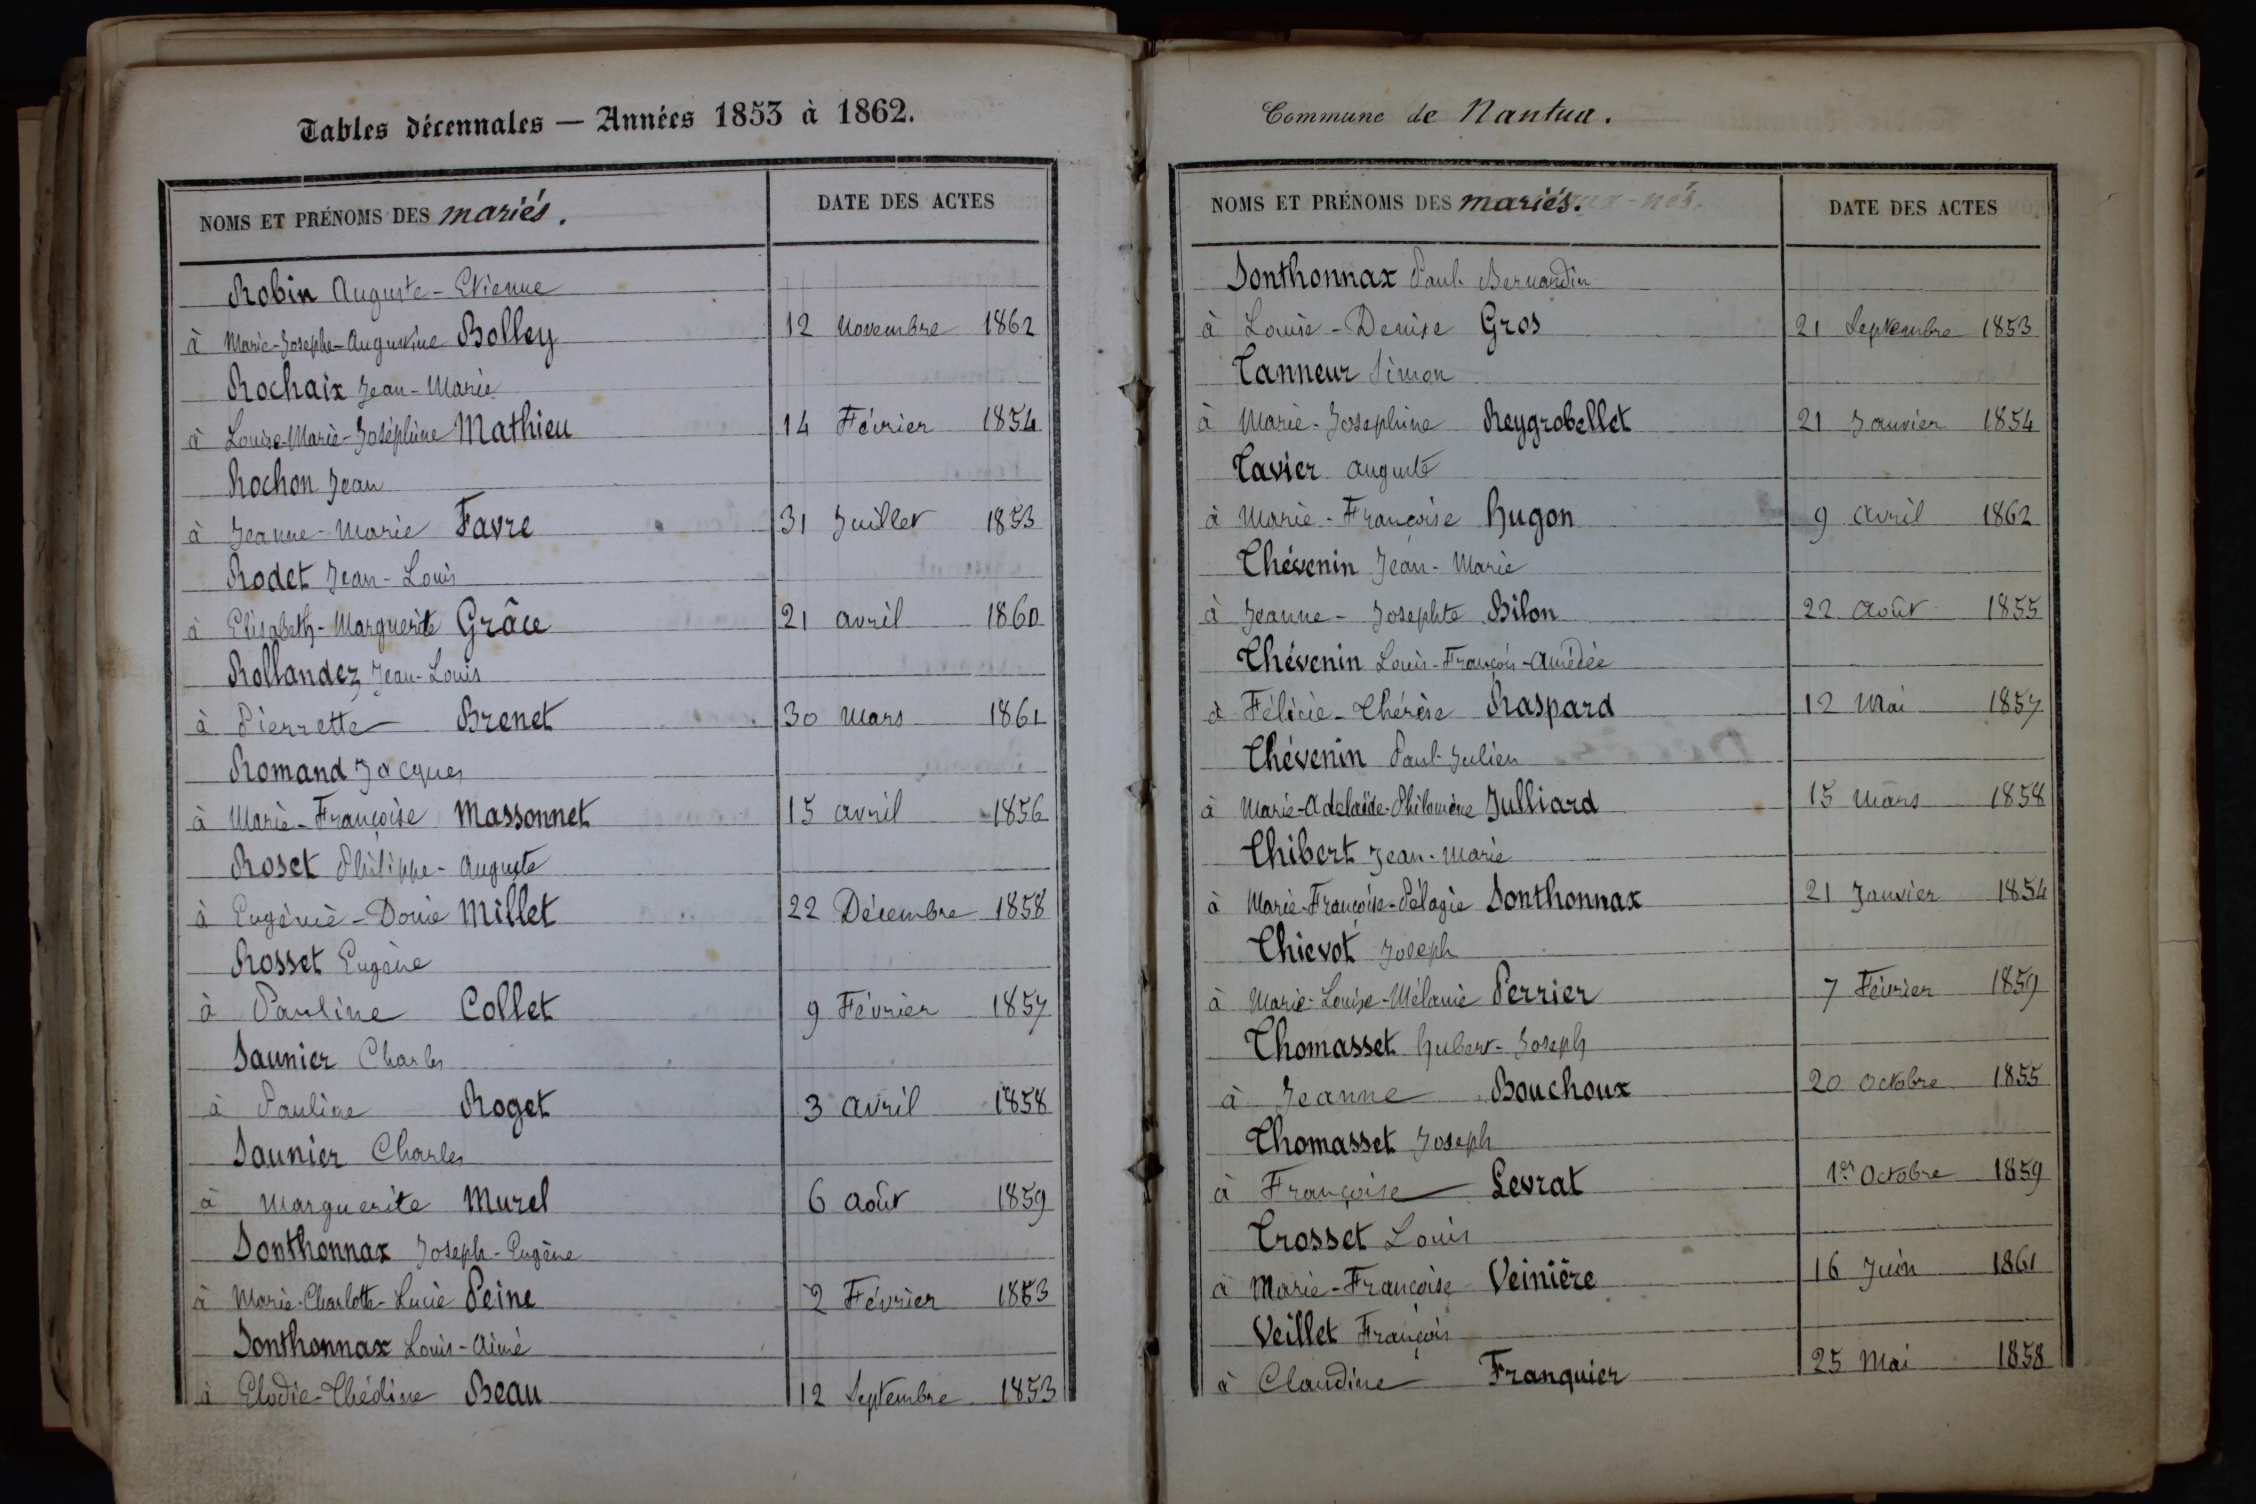 Tables décennales — Années 1853 à 1862.
NOMS ET PRÉNOMS DES mariés. DATE DES ACTES
Robin Auguste-Etienne
à Marie-Josephe-Augustine Bolley 12 Novembre 1862
Rochaix Jean-Marie
à Louise-Marie-Joséphine Mathieu 14 Février 1854
Rochon Jean
à Jeanne-Marie Favre 31 Juillet 1853
Rodet Jean-Louis
à Elisabeth-Marguerite Grâce 21 avril 1860
Rollandez Jean-Louis
à Pierrette Brenet 30 mars 1861
Romand Jacques
à Marie-Françoise Massonnet 15 avril 1856
Roset Philippe-Auguste
à Eugénie-Donie Millet 22 Décembre 1858
Rosset Eugène
à Pauline Collet 9 Février 1857
Saunier Charles
à Pauline Roget 3 avril 1858
Saunier Charles
à Marguerite Murel 6 août 1859
Sonthonnax Joseph-Eugène
à Marie-Charlotte-Lucie Peine 2 Février 1853
Sonthonnax Louis-Aimé
à Elodie-Thédine Beau 12 Septembre 1853
Commune de Nantua.
NOMS ET PRÉNOMS DES mariés. DATE DES ACTES
Sonthonnax Paul-Bernardin
à Louise-Denise Gros 21 Septembre 1853
Tanneur Simon
à Marie-Josephine Reygrobellet 21 Janvier 1854
Tavier Auguste
à Marie-Françoise Hugon 9 avril 1862
Thévenin Jean-Marie
à Jeanne-Josephte Bilon 22 août 1855
Thévenin Louis-François-Amédée
à Félicie-Thérèse Raspard 12 Mai 1857
Thévenin Paul-Julien
à Marie-Adelaïde-Philomène Julliard 15 Mars 1858
Thibert Jean-Marie
à Marie-Françoise-Pélagie Sonthonnax 21 Janvier 1854
Thievot Joseph
à Marie-Louise-Mélanie Perrier 7 Février 1859
Thomasset Hubert-Joseph
à Jeanne Bouchoux 20 Octobre 1855
Thomasset Joseph
à Françoise Levrat 1er Octobre 1859
Trosset Louis
à Marie-Françoise Veinière 16 Juin 1861
Veillet François
à Claudine Franquier 25 Mai 1858